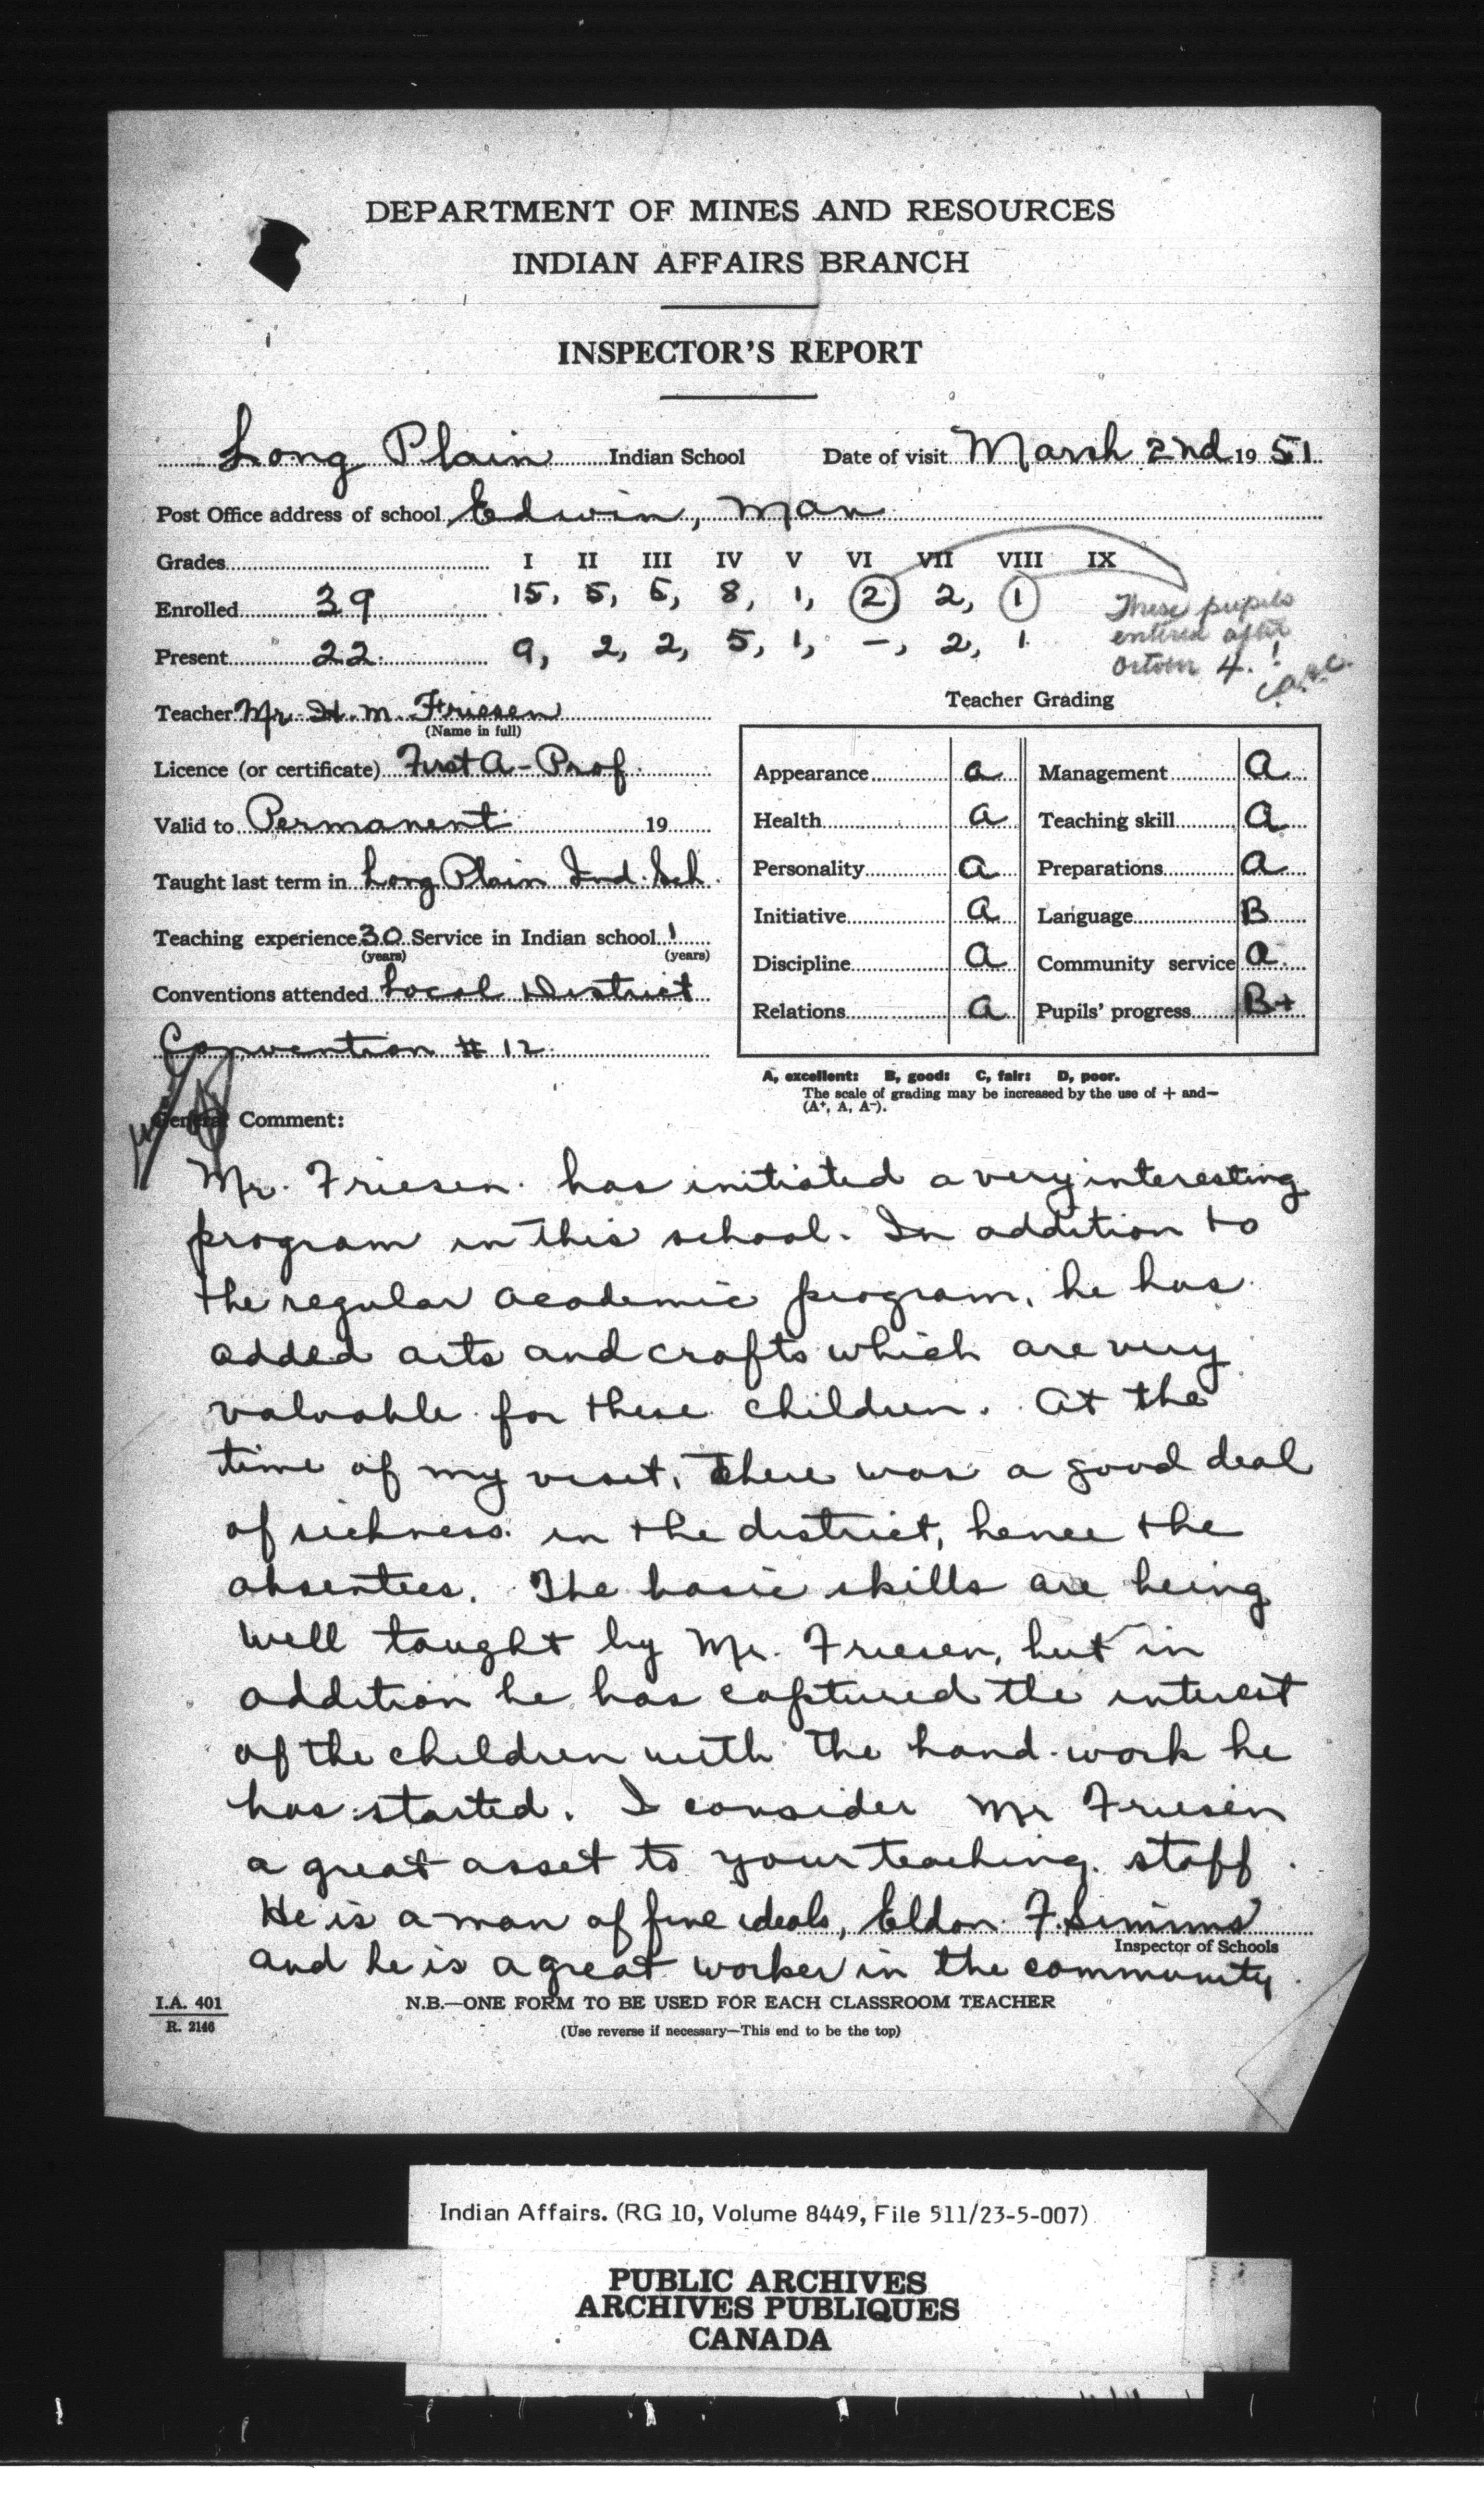 DEPARTMENT OF MINES AND RESOURCES
INDIAN AFFAIRS BRANCH
INSPECTOR'S REPORT
Long Plain Indian School Date of visit March 2nd 19 51
Post Office address of school Edwin, Man
Grades I II III IV V VI VII VIII IX
Enrolled 39 15, 5, 5, 8, 1, 2 2, 1
Present 22 9, 2, 2, 5, 1, -, 2, 1
These pupils
entered after
October 4.!
Teacher Mr. H. M. Friesen
(Name in full)
Licence (or certificate) First A - Prof.
Valid to Permanent 19
Taught last term in Long Plain Ind. Sch.
Teaching experience 30 Service in Indian school 1
(years) (years)
Conventions attended Local District
Convention # 12
Teacher Grading
Appearance A Management A
Health A Teaching skill A
Personality A Preparations A
Initiative A Language B
Discipline A Community service A
Relations A Pupils' progress B+
A, excellent: B, good: C, fair: D, poor.
The scale of grading may be increased by the use of + and—
(A⁺, A, A⁻).
General Comment:
Mr. Friesen has initiated a very interesting
program in this school. In addition to
the regular academic program, he has
added arts and crafts which are very
valuable for these children. At the
time of my visit, there was a good deal
of sickness in the district, hence the
absentees. The basic skills are being
well taught by Mr. Friesen, but in
addition he has captured the interest
of the children with the hand-work he
has started. I consider Mr Friesen
a great asset to your teaching staff.
He is a man of fine ideals, Eldon F. Simms
Inspector of Schools
and he is a great worker in the community.
I.A. 401
R. 2146
N.B.—ONE FORM TO BE USED FOR EACH CLASSROOM TEACHER
(Use reverse if necessary—This end to be the top)
Indian Affairs. (RG 10, Volume 8449, File 511/23-5-007)
PUBLIC ARCHIVES
ARCHIVES PUBLIQUES
CANADA